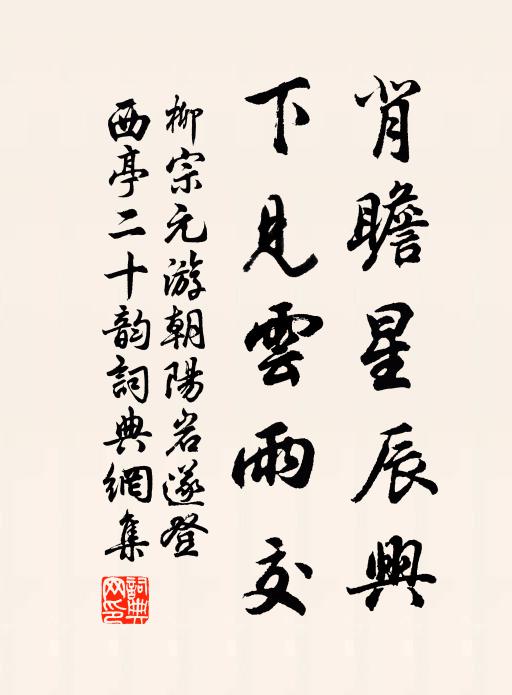 肖瞻星辰興
下見雲雨交
柳宗元游朝陽岩遂登
西亭二十韵詞典網集
詞典網印